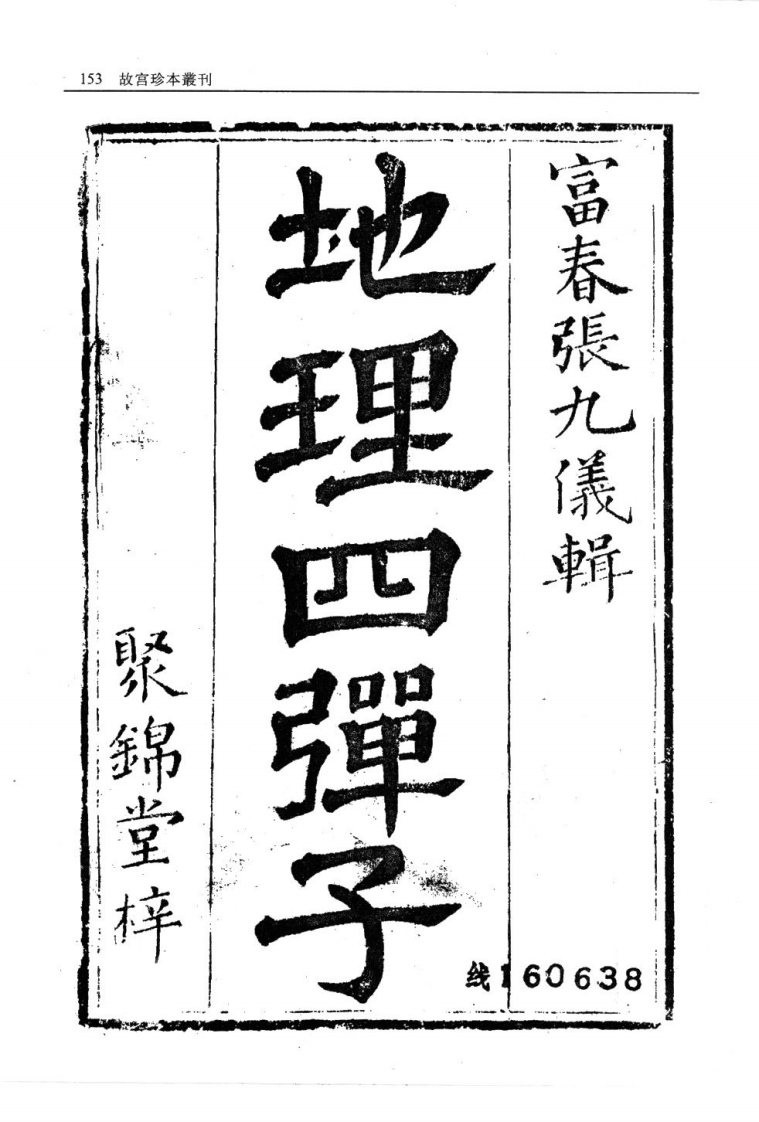 153 故宮珍本叢刊
富春張九儀輯
地理四彈子
聚錦堂梓
线160638